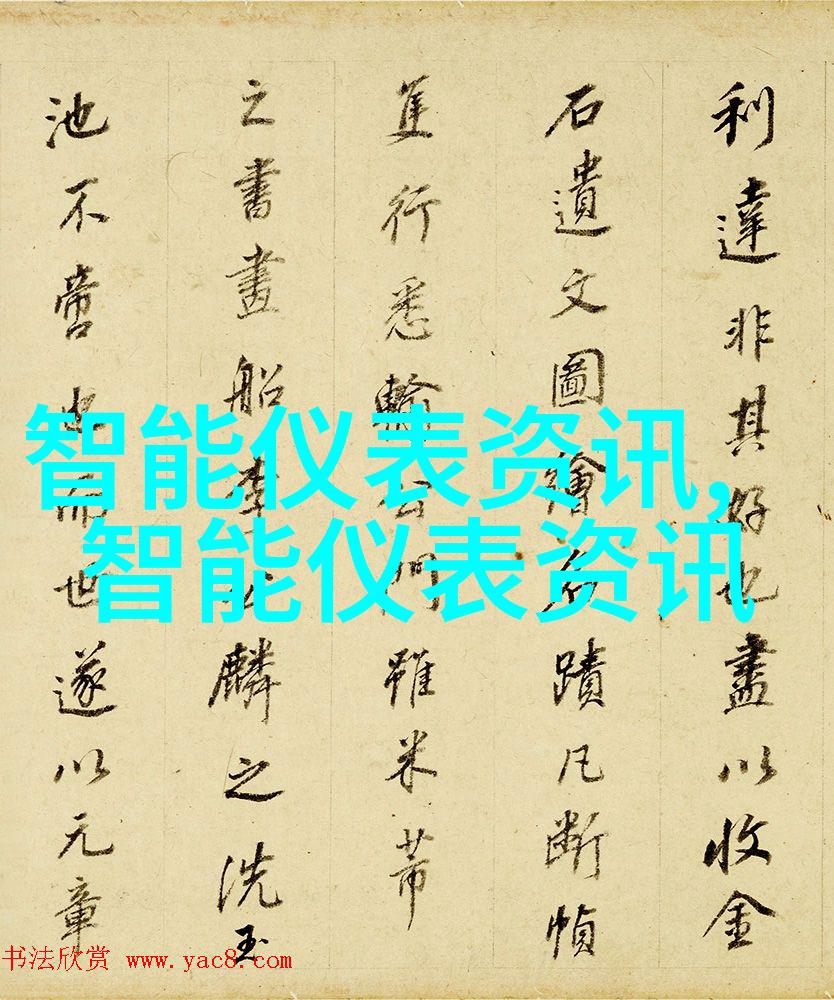 利達非其好也盡以收金
石遺文圖繪名蹟凡斷幀
隻行悉輸公門雖米芾
之書畫船李公麟之洗玉
池不啻也而世遂以元章
智能仪表资讯,
智能仪表资讯
书法欣赏 www.yac8.com